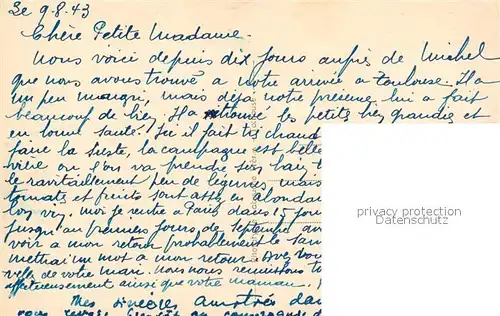 Le 9-8-43
Chère Petite Madame.
Nous voici depuis dix jours auprès de Michel
que nous avons trouvé a notre arrivée a Toulouse. Il a
un peu maigri, mais déja notre présence lui a fait
beaucoup de bien. Il a retrouvé les petits bien grandis et
en bonne santé. Ici il fait tès chaud
faire la sieste, la campagne est belle
vière ou l'on va prendre son bain
le ravitaillement peu de légumes mais
tomats et fruits sont assez en abondan
moi je rentre a Paris dans 15 jou
jusqu'au premiers jours de septembre
voir a mon retour probablement le sam
mettrai un mot a mon retour. Avez vous
velles de votre mari. Nous nous réunissons
affectueusement ainsi que votre maman.
Mes sincères amitiés
privacy protection
Datenschutz